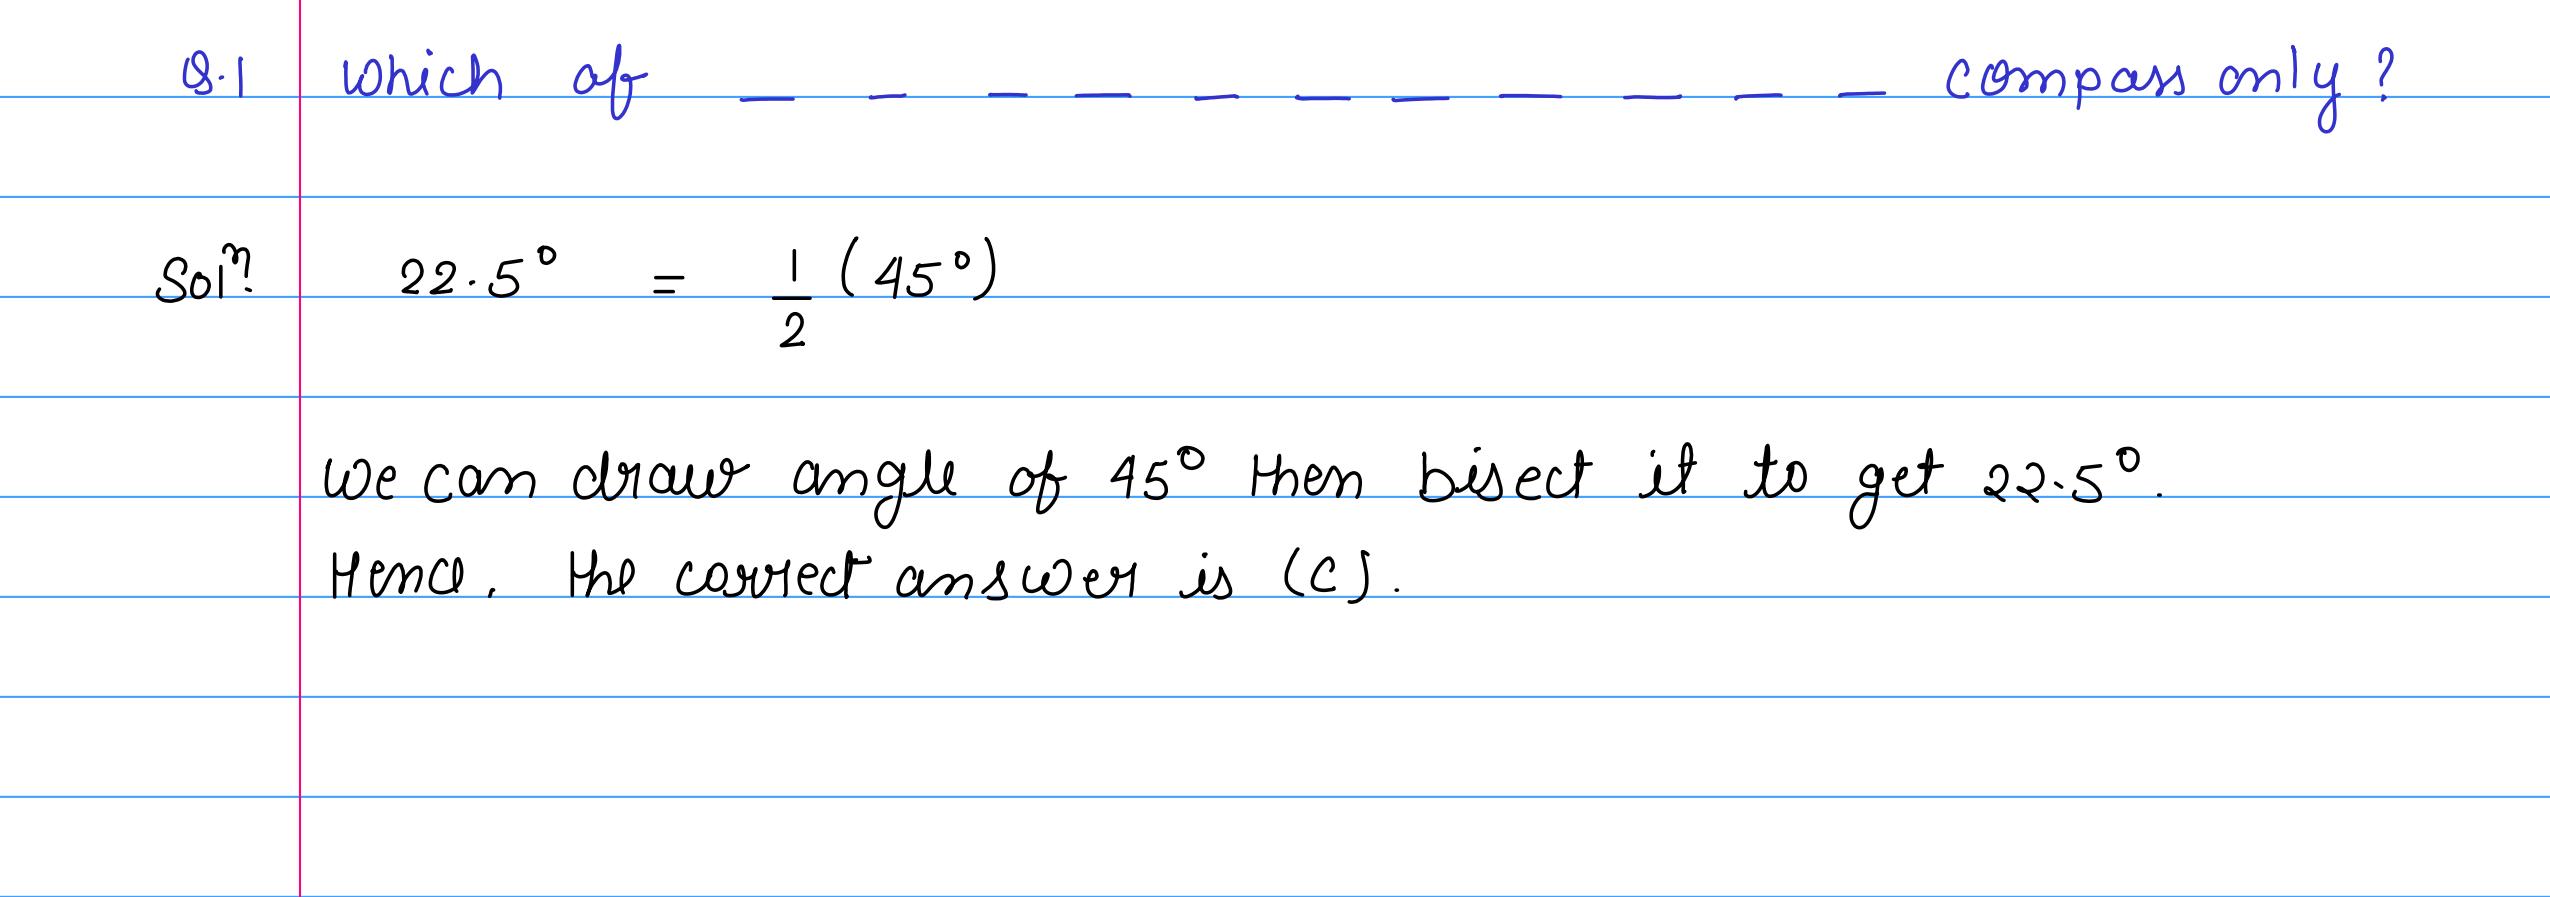 Q.1 Which of _ _ _ _ _ _ _ _ _ _ _ compass only?
Solⁿ. 22.5° = 1/2 (45°)
We can draw angle of 45° then bisect it to get 22.5°.
Hence, the correct answer is (C).